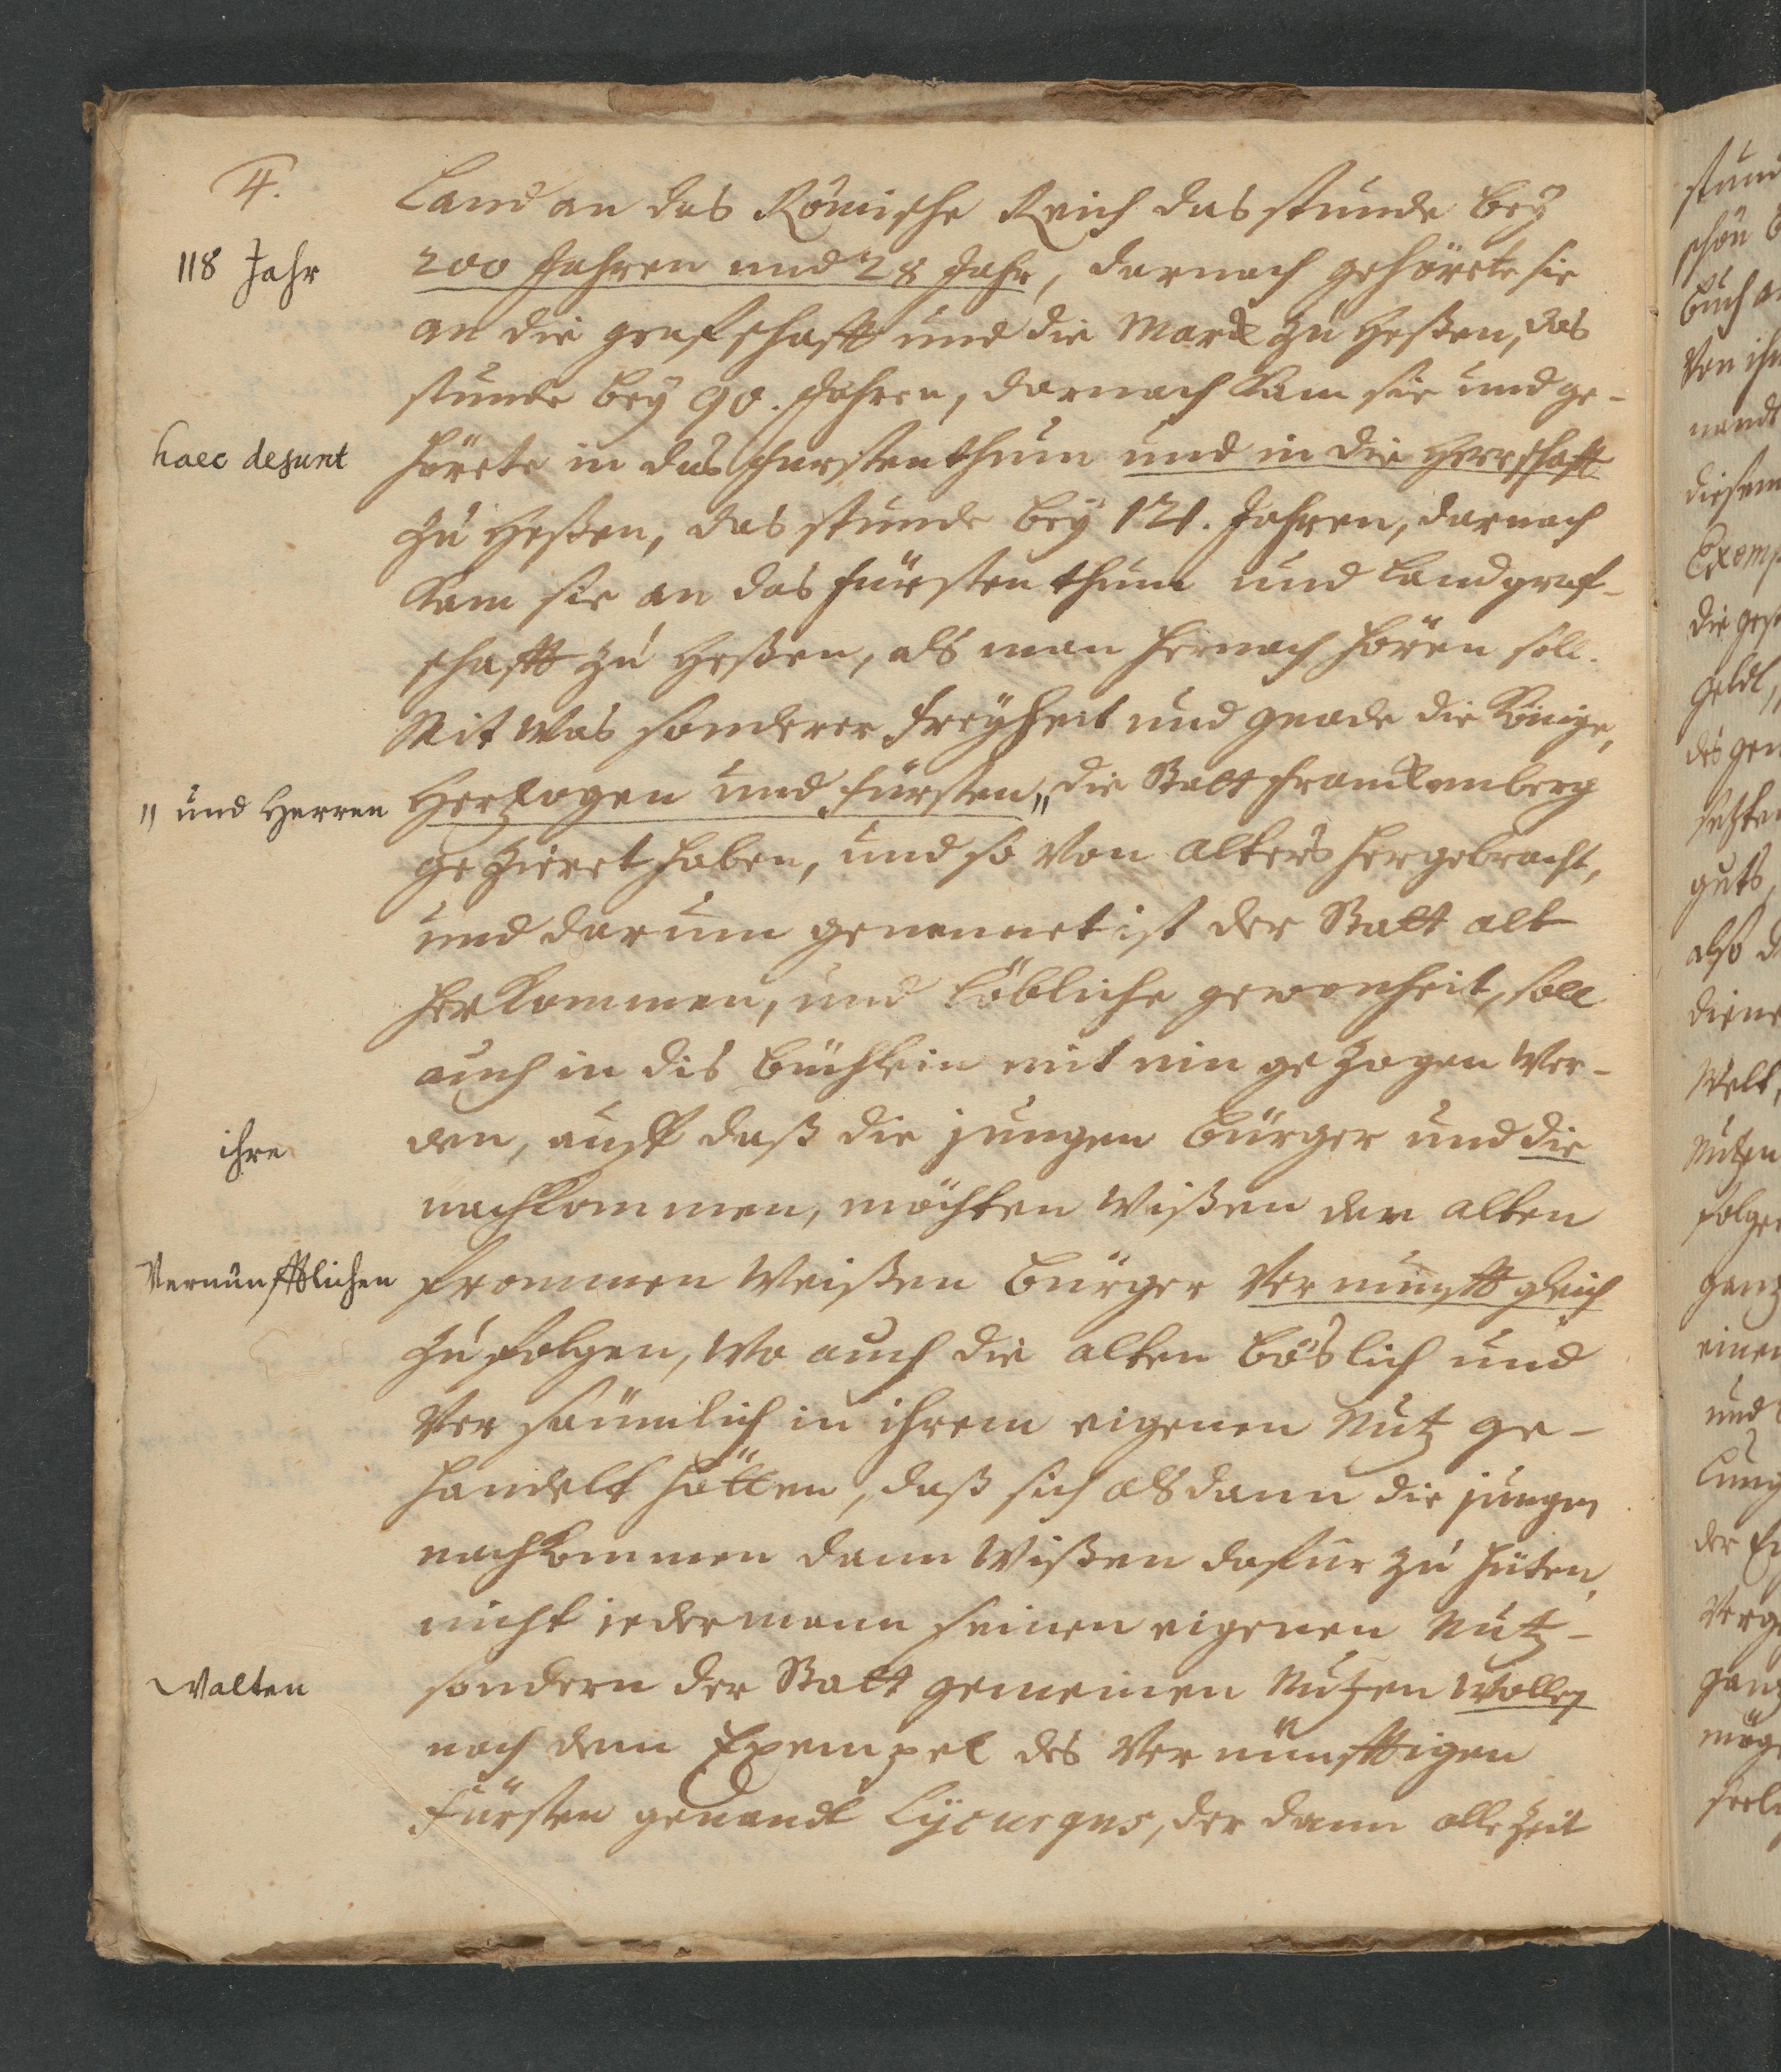 4.
Land an das Römische Reich das stunde bey
118 Jahr
200 Jahren und 28 Jahr, darnach gehörete sie
an die grafschafft und die Marck zu Heßen, das
stunde bey 90. Jahren, darnach kam sie und ge-
haec desunt
hörete in das furstenthum und in die Herrschafft
zu Heßen, das stunde bey 121. Jahren, darnach
kam sie an das fürstenthum und Landgraf-
schafft zu Heßen, als man hernach hören soll.
Mit was sonderer freyheit und gnade die Könige,
" und Herren
Hertzogen und fürsten " die Statt Franckenberg
gezieret haben, und so von alters hergebracht,
und darum genennet ist der Statt alt
herkommen, und löbliche gewonheit, soll
auch in dis büchlein mit ein gezogen wer-
ihre
den, auff daß die jungen bürger und die
nachkommen, möchten wißen den alten
Vernünfftlichen
frommen weißen bürger vernunfft gleich
zu folgen, wo auch die alten böslich und
versäumlich in ihrem eigenen Nutz ge-
handelt hätten, daß sich alsdann die jungen
nachkommen dann wißen dafur zu hüten,
nicht iedermann seinen eigenen Nutz-
walten
sondern der Statt gemeinen Nutzen wollen
nach dem Exempel des vernünfftigen
fürsten genandt Lycurgus, der dann allezeit